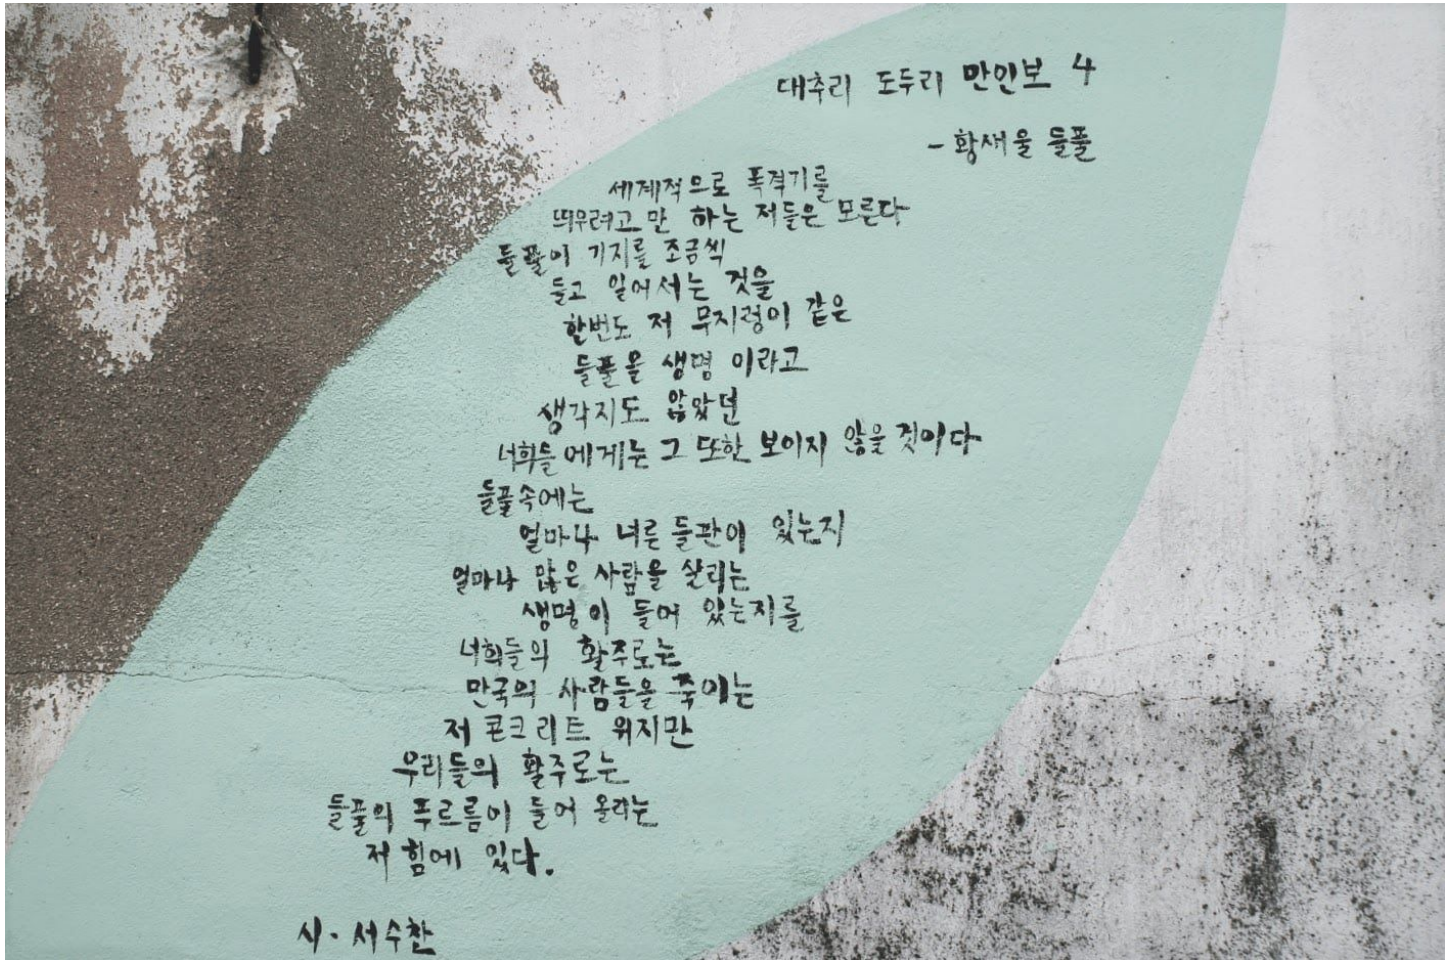 대추리 도두리 만인보 4
- 황새울 들풀
세계적으로 폭격기를
띄우려고만 하는 저들은 모른다
들풀이 기지를 조금씩
들고 일어서는 것을
한번도 저 무지렁이 같은
들풀을 생명 이라고
생각지도 않았던
너희들에게는 그 또한 보이지 않을 것이다
들풀속에는
얼마나 너른 들판이 있는지
얼마나 많은 사람을 살리는
생명이 들어 있는지를
너희들의 활주로는
만국의 사람들을 죽이는
저 콘크리트 위지만
우리들의 활주로는
들풀의 푸르름이 들어 올리는
저 힘에 있다.
시·서수찬